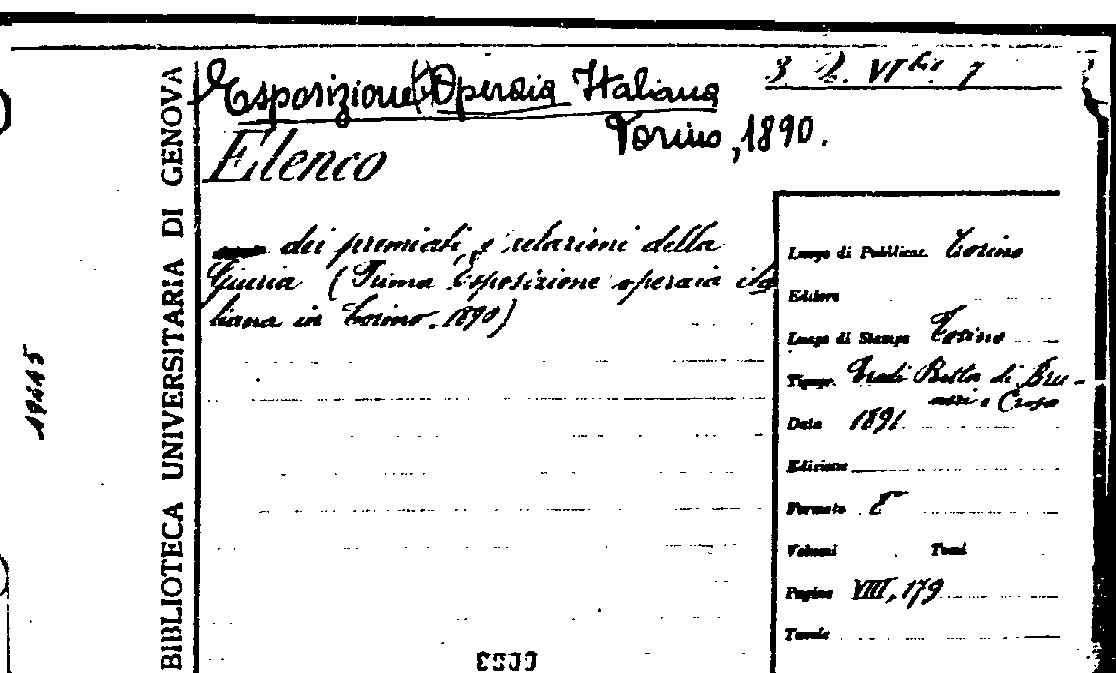 BIBLIOTECA UNIVERSITARIA DI GENOVA
Esposizione Operaia Italiana
Torino, 1890.
Elenco
dei premiati, e relazioni della
Giuria (Prima Esposizione operaia ita
liana in Torino. 1890)
3. L. VI bis 7
Luogo di Pubblicaz. Torino
Editore
Luogo di Stampa Torino
Tipogr. Eredi Botta di Bru-
neri e Crosa
Data 1891
Edizione
Formato 8
Volumi Tomi
Pagine VIII, 179
Tavole